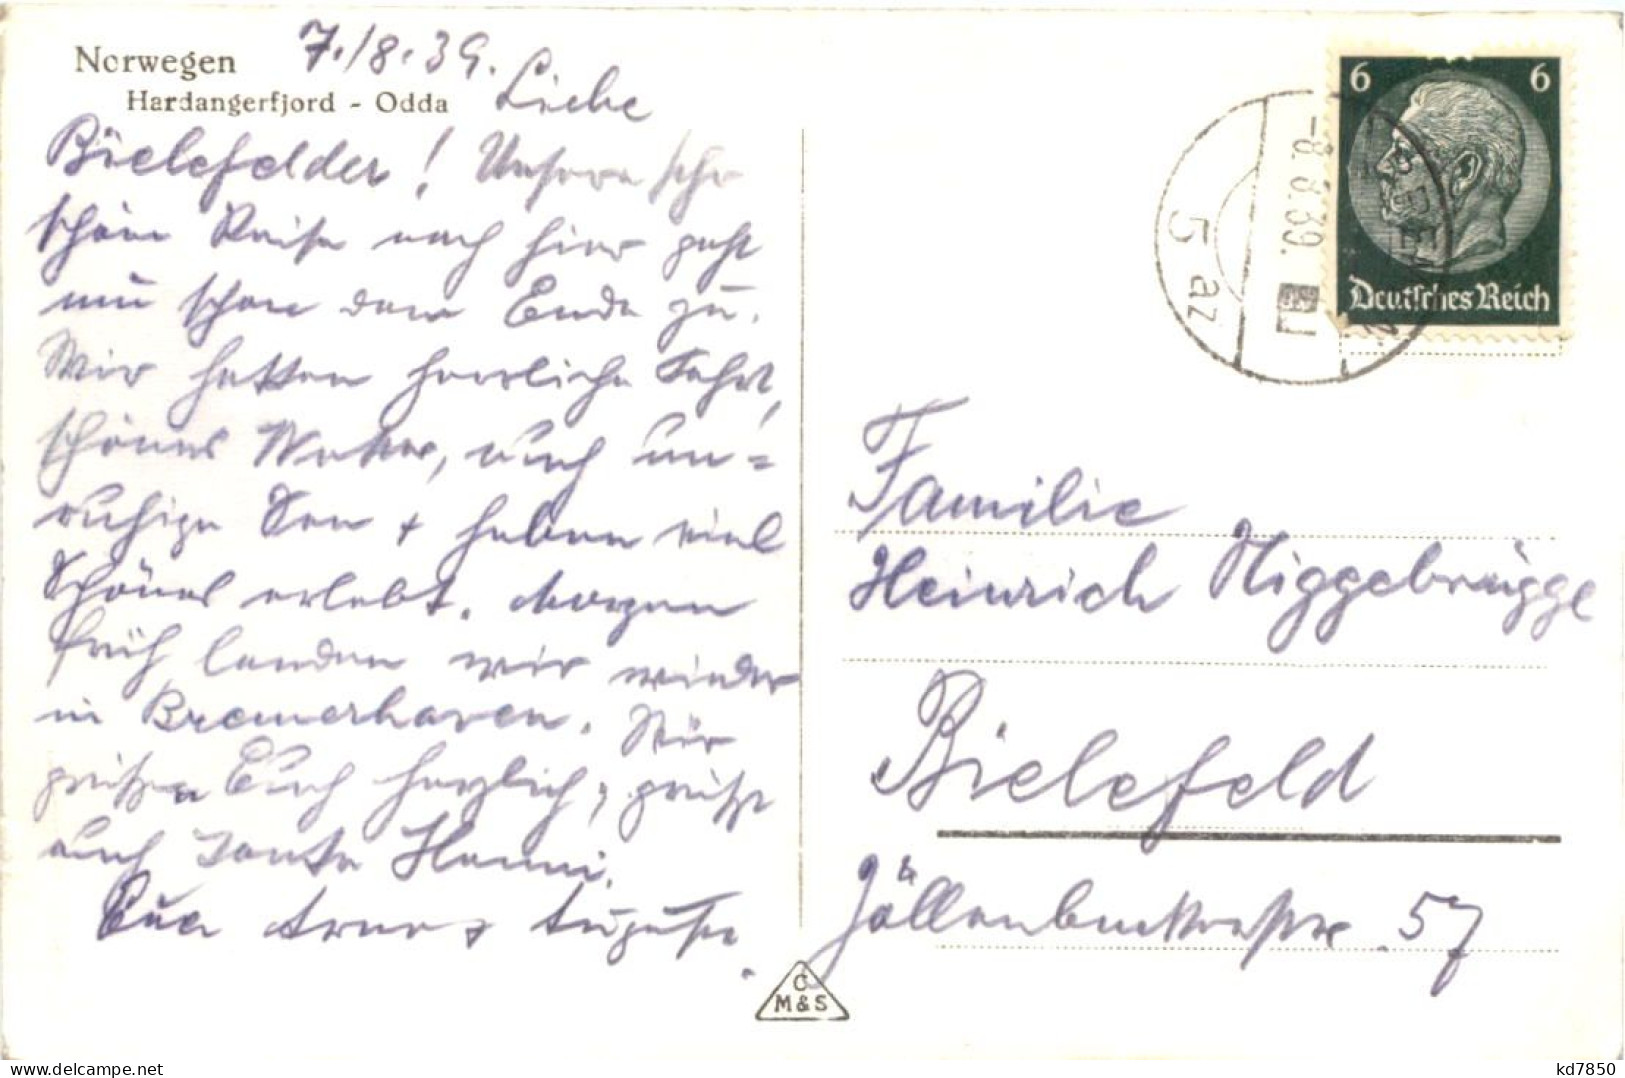 Norwegen
Hardangerfjord - Odda
7./8.39. Liebe
Bielefelder! Unsere sehr
schöne Reise nach hier geht
nun schon dem Ende zu.
Wir hatten herrliche Fahrt,
schönes Wetter, auch un=
ruhige See + haben viel
Schönes erlebt. Morgen
früh landen wir wieder
in Bremerhaven. Wir
grüßen Euch herzlich, grüßt
auch Tante Hanni.
Eure Auguste.
6 6
Deutsches Reich
-8.8.39.
5 az
Familie
Heinrich Niggebrügge
Bielefeld
Jöllenbeckerstraße 57
C
M&S
delcampe.net
kd7850